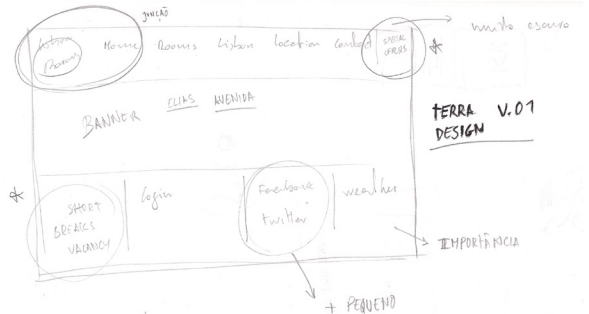 JUNÇÃO
muito escuro
Lisboa
Home Rooms Lisbon Location Contact SPECIAL OFFERS
BANNER ELIAS AVENIDA
TERRA V.01
DESIGN
SHORT
BREAKS
VACANCY
login
Facebook
twitter
weather
IMPORTÂNCIA
+ PEQUENO